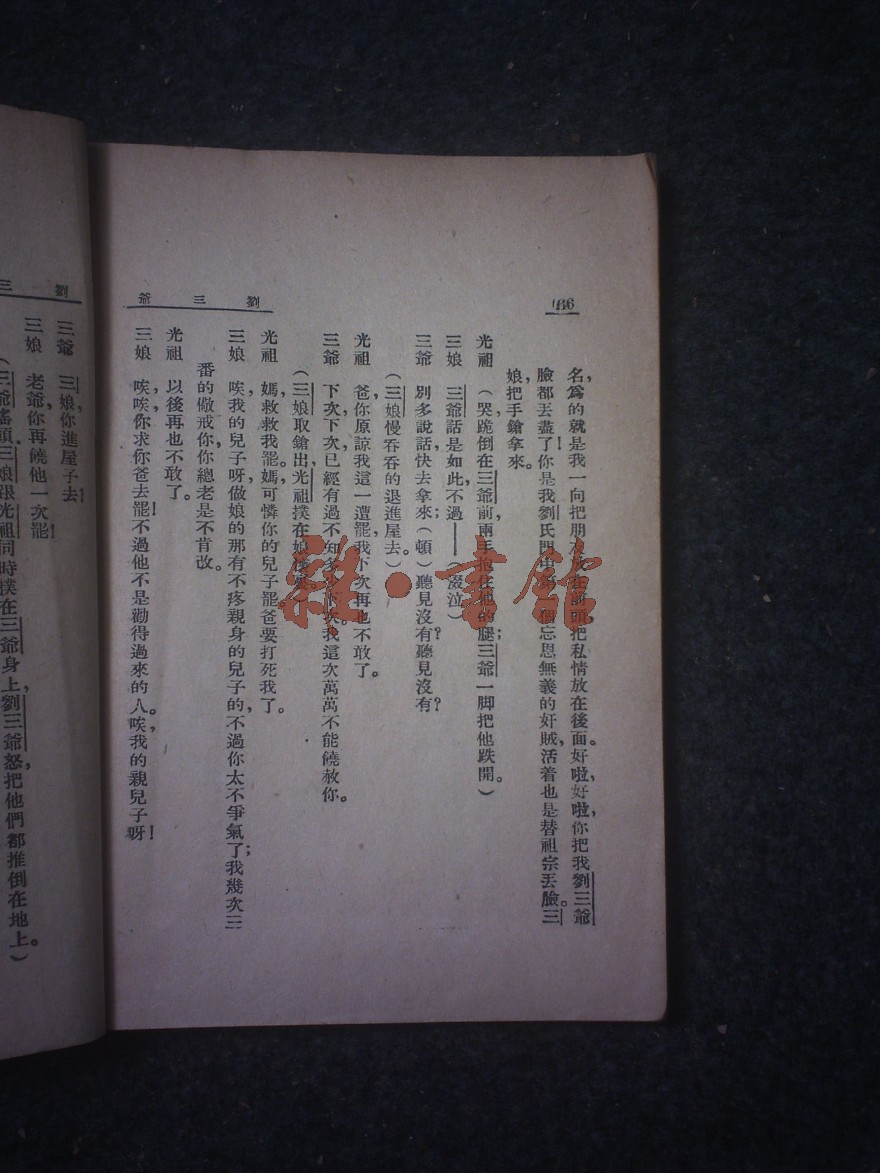 186
劉三爺
名,為的就是我一向把朋友放在前頭,把私情放在後面。好啦,好啦,你把我劉三爺
臉都丟盡了!你是我劉氏門中忘恩無義的奸賊,活着也是替祖宗丟臉。三
娘,把手鎗拿來。
光祖 (哭,跪倒在三爺前,兩手抱住他的腿;三爺一脚把他跌開。)
三娘 三爺,話是如此,不過——(啜泣)
三爺 別多說話,快去拿來;(頓)聽見沒有?聽見沒有?
(三娘慢吞吞的退進屋去。)
光祖 爸,你原諒我這一遭罷,我下次再也不敢了。
三爺 下次,下次,已經有過不知多少下次。我這次萬萬不能饒赦你。
(三娘取鎗出,光祖撲在娘)
光祖 媽,救救我罷。媽,可憐你的兒子罷,爸要打死我了。
三娘 唉,我的兒子呀,做娘的那有不疼親身的兒子的,不過你太不爭氣了;我幾次三
番的儆戒你,你總老是不肯改。
光祖 以後再也不敢了。
三娘 唉,唉,你求你爸去罷!不過他不是勸得過來的人。唉,我的親兒子呀!
劉三
三爺 三娘,你進屋子去!
三娘 老爺,你再饒他一次罷!
(三爺搖頭。三娘跟光祖同時撲在三爺身上,劉三爺怒,把他們都推倒在地上。)
雜·書館